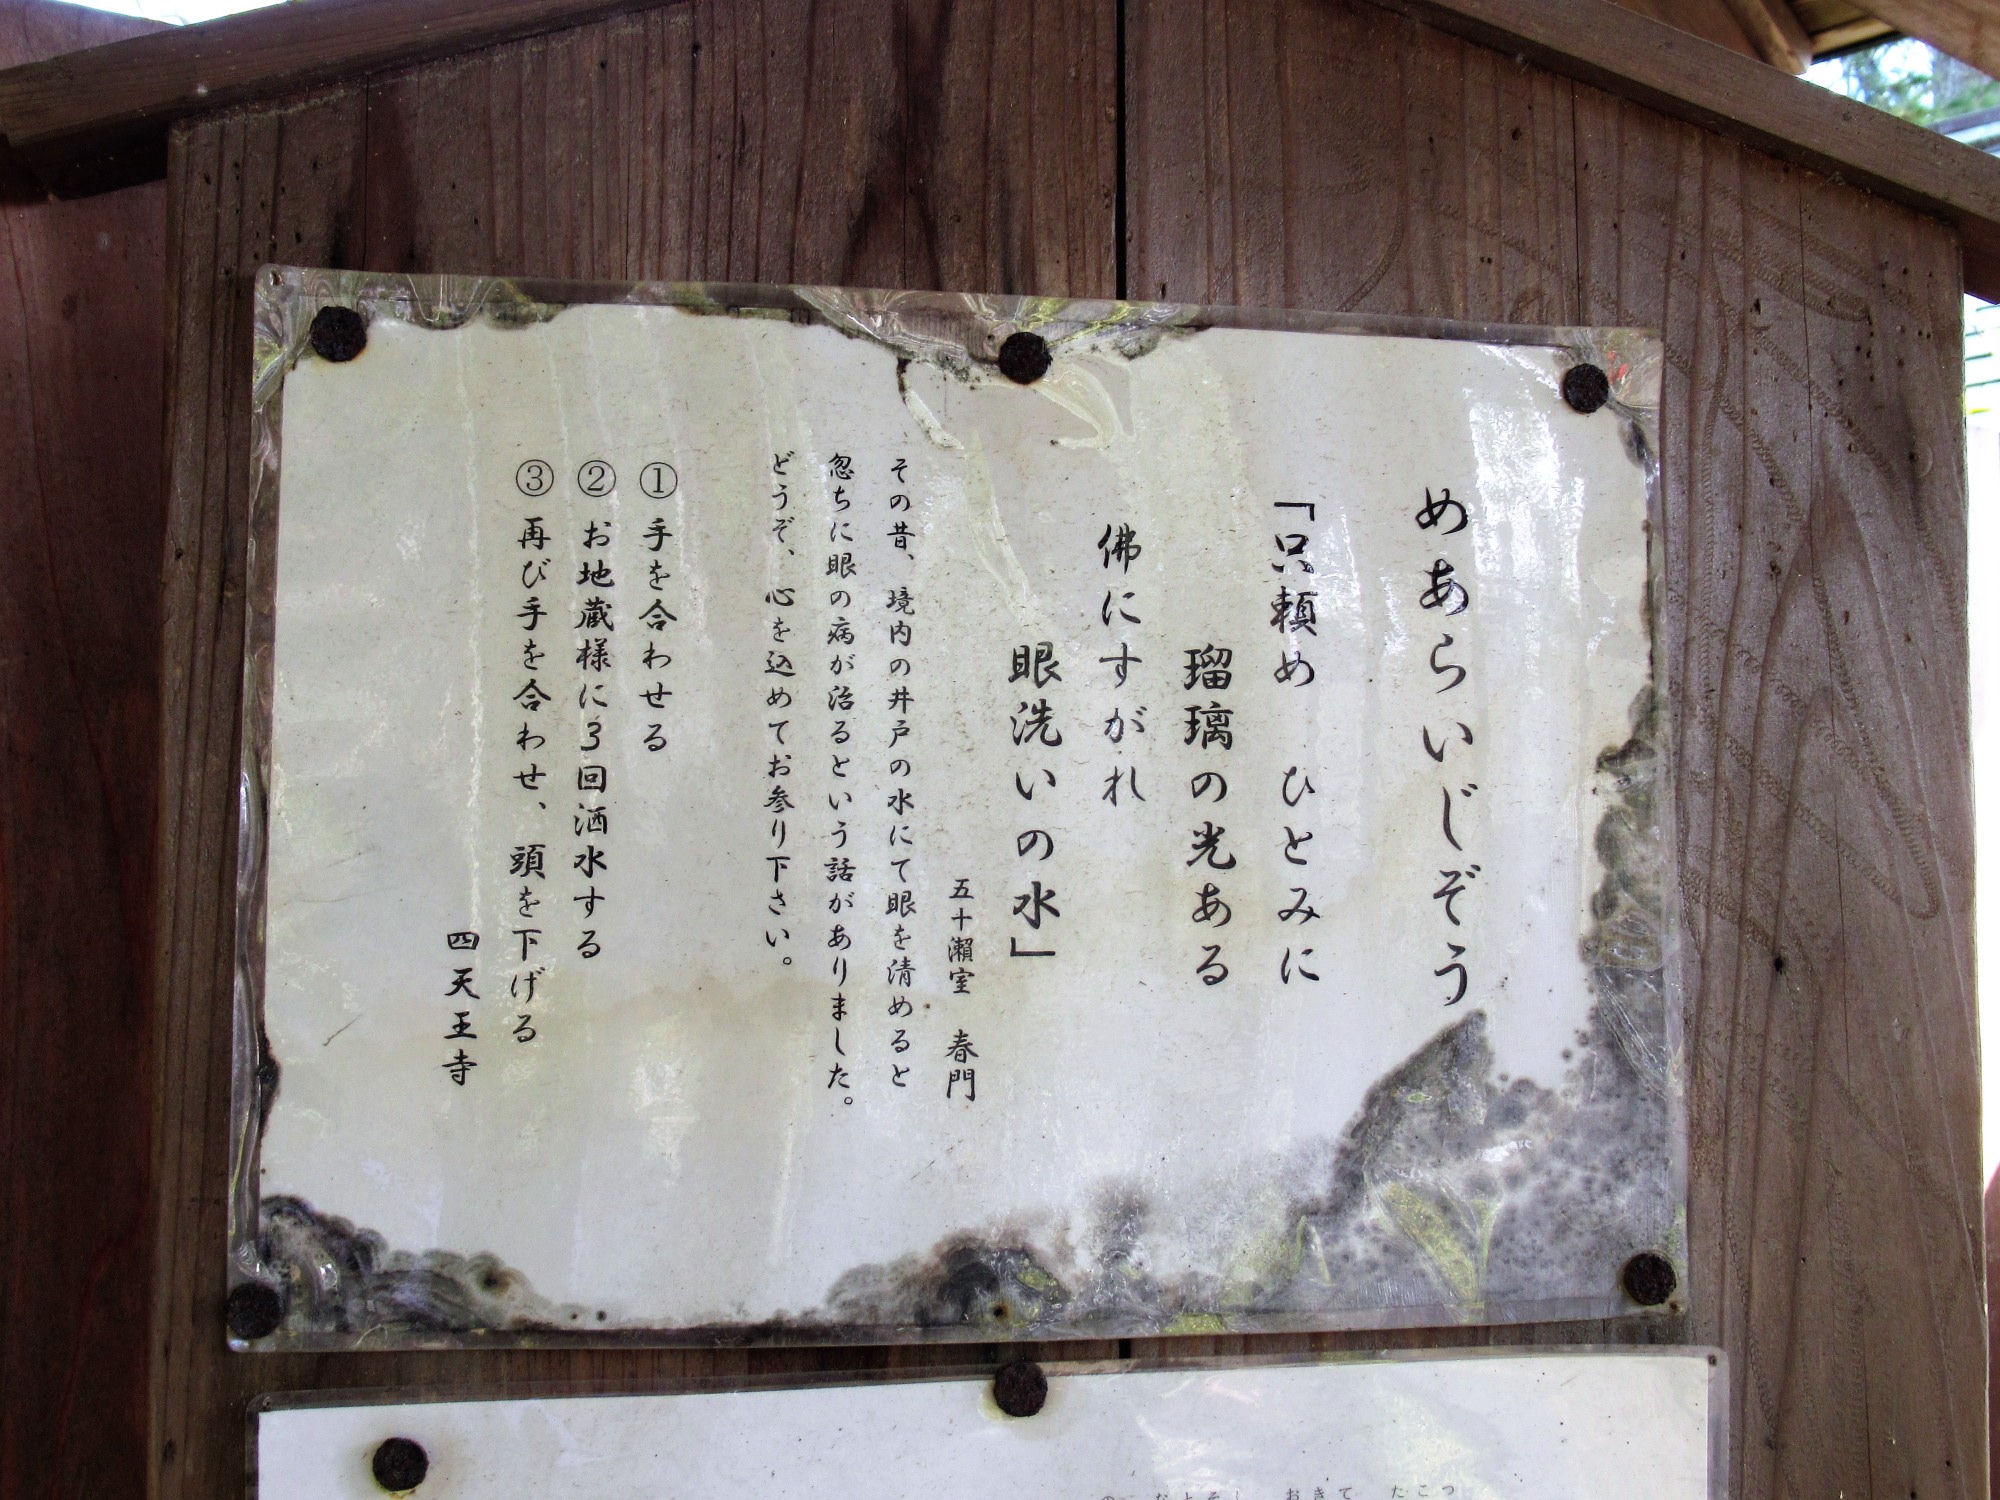 めあらいじぞう
「只頼め　ひとみに
瑠璃の光ある
佛にすがれ
眼洗いの水」
五十瀬室　春門
その昔、境内の井戸の水にて眼を清めると
忽ちに眼の病が治るという話がありました。
どうぞ、心を込めてお参り下さい。
①手を合わせる
②お地蔵様に3回洒水する
③再び手を合わせ、頭を下げる
四天王寺